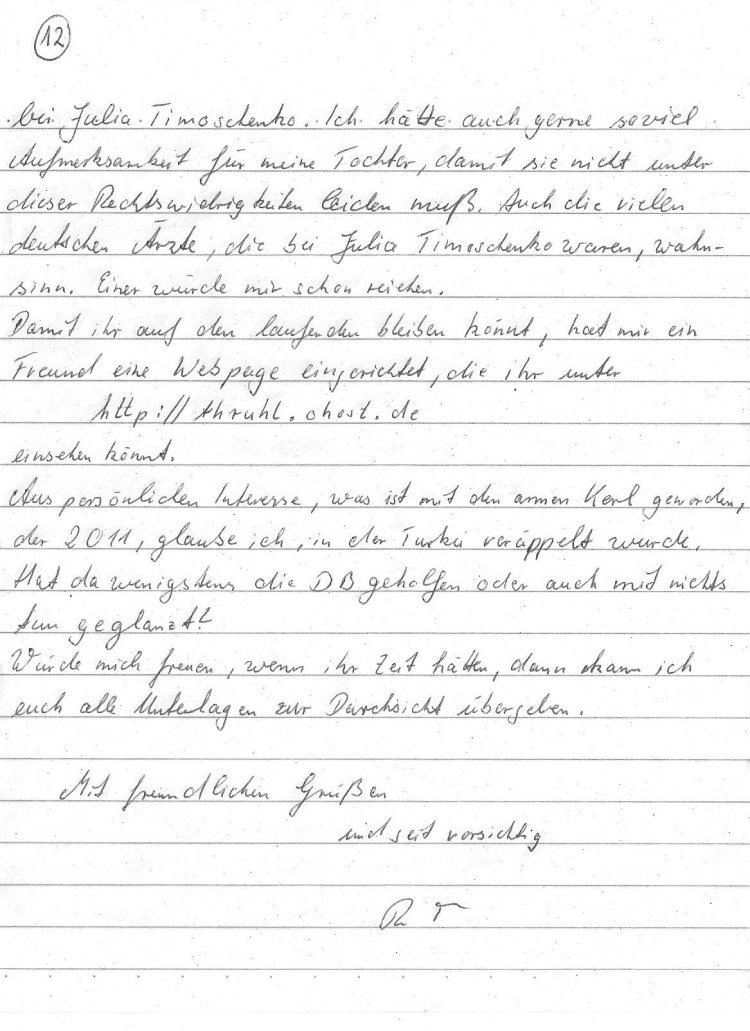 12
bei Julia Timoschenko. Ich hätte auch gerne soviel
Aufmerksamkeit für meine Tochter, damit sie nicht unter
dieser Rechtswidrigkeiten leiden muß. Auch die vielen
deutschen Ärzte, die bei Julia Timoschenko waren, wahn-
sinn. Einer würde mir schon reichen.
Damit ihr auf den laufenden bleiben könnt, hat mir ein
Freund eine Webpage eingerichtet, die ihr unter
http://thruhl.ohost.de
einsehen könnt.
Aus persönlichen Interesse, was ist mit den armen Kerl geworden,
der 2011, glaube ich, in der Türkei veräppelt wurde.
Hat da wenigstens die DB geholfen oder auch mit nichts
tun geglänzt?
Würde mich freuen, wenn ihr Zeit hätten, dann kann ich
euch alle Unterlagen zur Durchsicht übergeben.
Mit freundlichen Grüßen
und seit vorsichtig